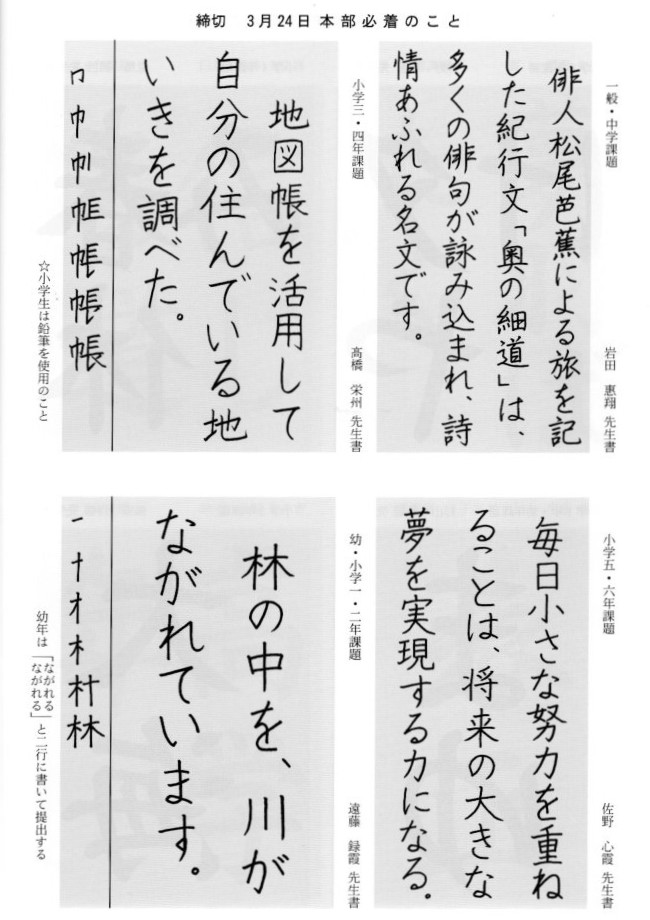 締切　3月24日本部必着のこと
一般・中学課題
岩田　惠翔 先生書
俳人松尾芭蕉による旅を記
した紀行文「奥の細道」は、
多くの俳句が詠み込まれ、詩
情あふれる名文です。
小学三・四年課題
髙橋　栄州 先生書
地図帳を活用して
自分の住んでいる地
いきを調べた。
帳
☆小学生は鉛筆を使用のこと
小学五・六年課題
佐野　心霞 先生書
毎日小さな努力を重ね
ることは、将来の大きな
夢を実現する力になる。
幼・小学一・二年課題
遠藤　録霞 先生書
林の中を、川が
ながれています。
一十才木村林
幼年は「ながれる
ながれる」と二行に書いて提出する